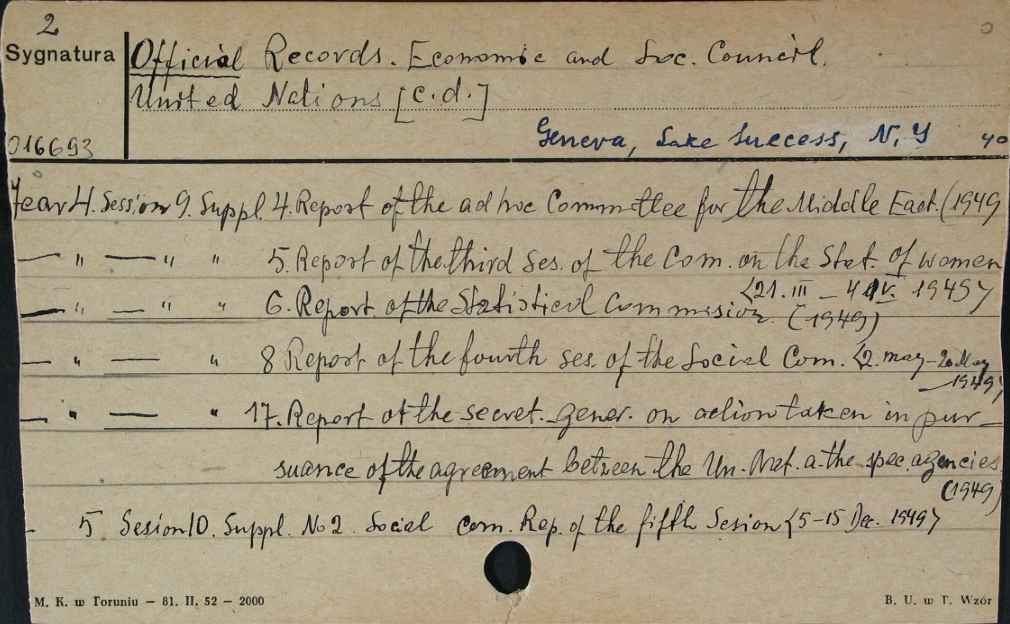 2
Sygnatura
Official Records. Economic and Soc. Council.
United Nations [c.d.]
016693
Geneva, Lake Success, N, Y 40
Year 4. Session 9. Suppl. 4. Report of the ad hoc Committee for the Middle East. (1949
— " — " " 5. Report of the third ses. of the Com. on the Stat. of women
<21. III — 4 IV. 1949>
— " — " " 6. Report of the Statistical Commission. (1949)
— " — " 8 Report of the fourth ses. of the Social Com. <2. may - 20 May
— 1949>
— " — " 17. Report of the secret. gener. on action taken in pur-
suance of the agreement between the Un. Nat. a. the spec. agencies
(1949)
- 5 Sesion 10. Suppl. No 2. Social Com. Rep. of the fifth Sesion <5-15 Dec. 1949>
M. K. w Toruniu — 81. II. 52 — 2000
B. U. w T. Wzór